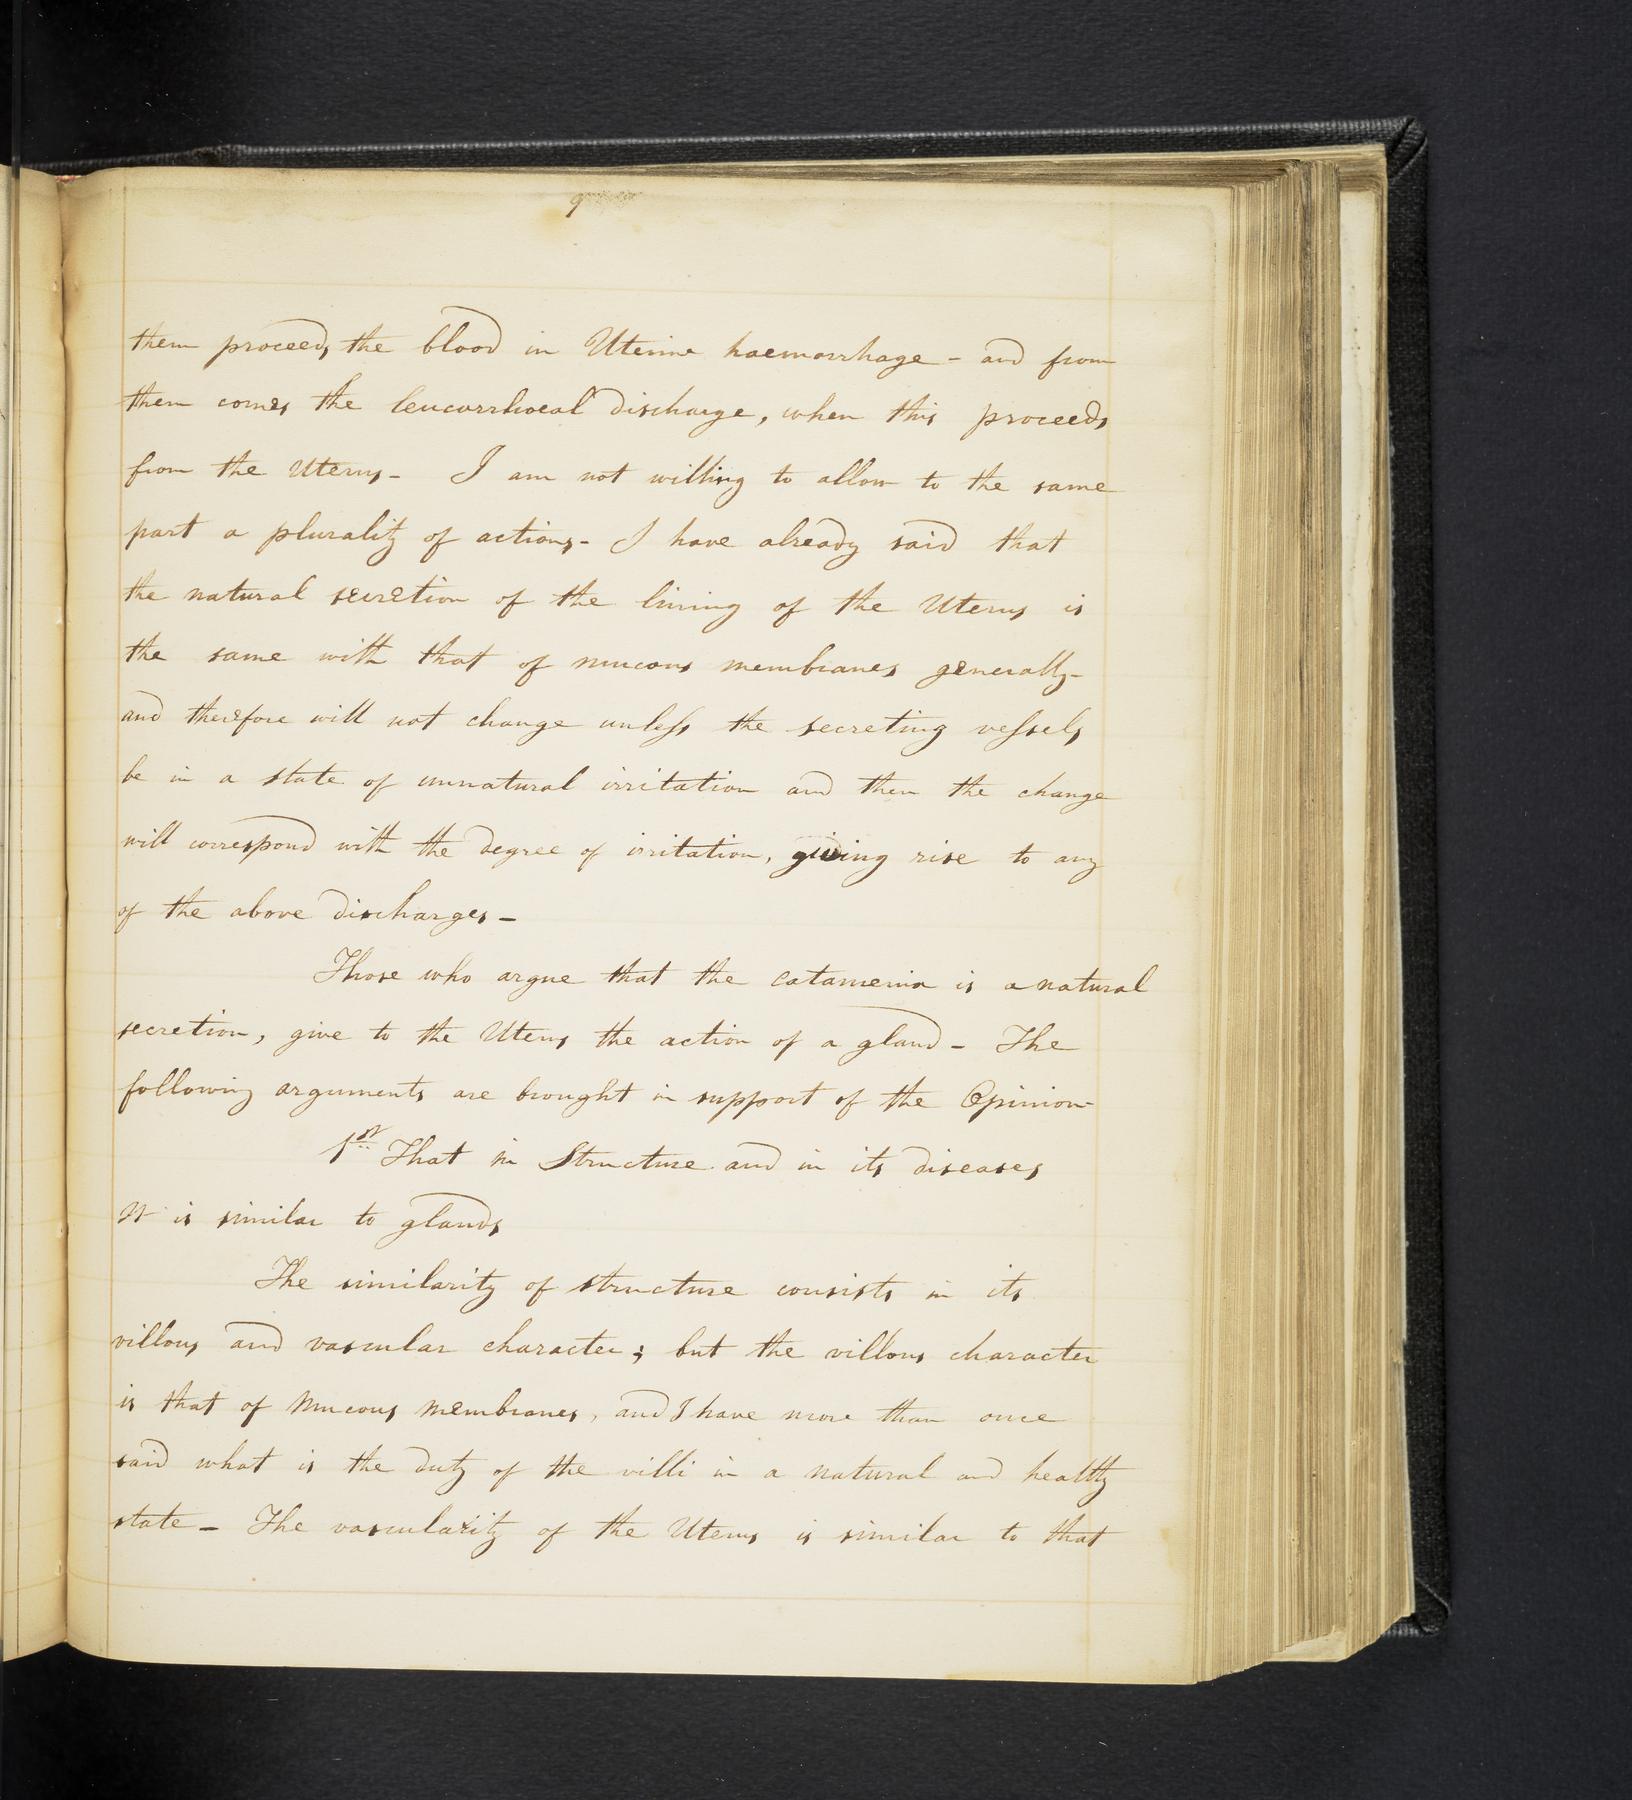 9
them proceeds the blood in Uterine haemorrhage - and from
them comes the leucorrhoeal discharge, when this proceeds
from the Uterus - I am not willing to allow to the same
part a plurality of actions - I have already said that
the natural secretion of the lining of the Uterus is
the same with that of mucous membranes generally -
and therefore will not change unless the secreting vessels
be in a state of unnatural irritation and then the change
will correspond with the degree of irritation, giving rise to any
of the above discharges -
Those who argue that the catamenia is a natural
secretion, give to the Uterus the action of a gland - The
following arguments are brought in support of the Opinion -
1st That in Structure and in its diseases
it is similar to glands
The similarity of structure consists in its
villous and vascular character; but the villous character
is that of Mucous Membranes, and I have more than once
said what is the duty of the villi in a natural and healthy
state - The vascularity of the Uterus is similar to that